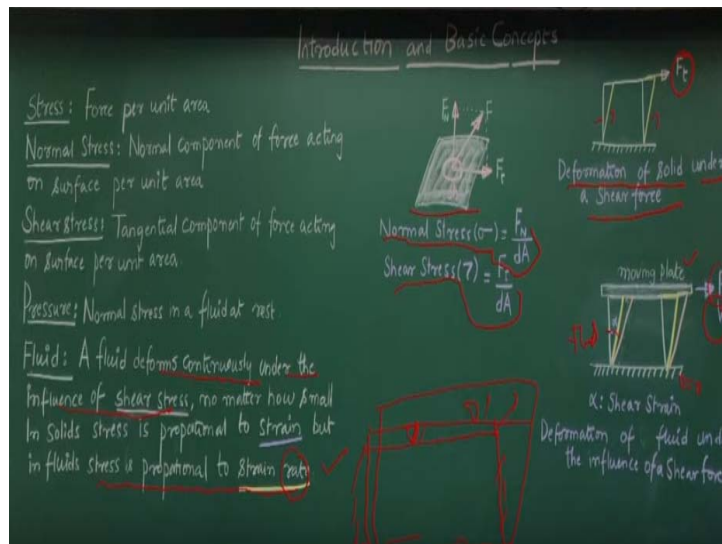 Introduction and Basic Concepts
Stress: Force per unit area
Normal Stress: Normal component of force acting
on surface per unit area
Shear stress: Tangential component of force acting
on surface per unit area.
Pressure: Normal stress in a fluid at rest.
Fluid: A fluid deforms continuously under the
influence of shear stress, no matter how small
In solids stress is propotional to strain but
in fluids stress is propotional to strain rate
F_N
F
F_t
Normal Stress(σ) = F_N/dA
Shear Stress(τ) = F_t/dA
F_t
Deformation of solid under
a shear force
moving plate
α: Shear Strain
Deformation of fluid und
the influence of a Shear force